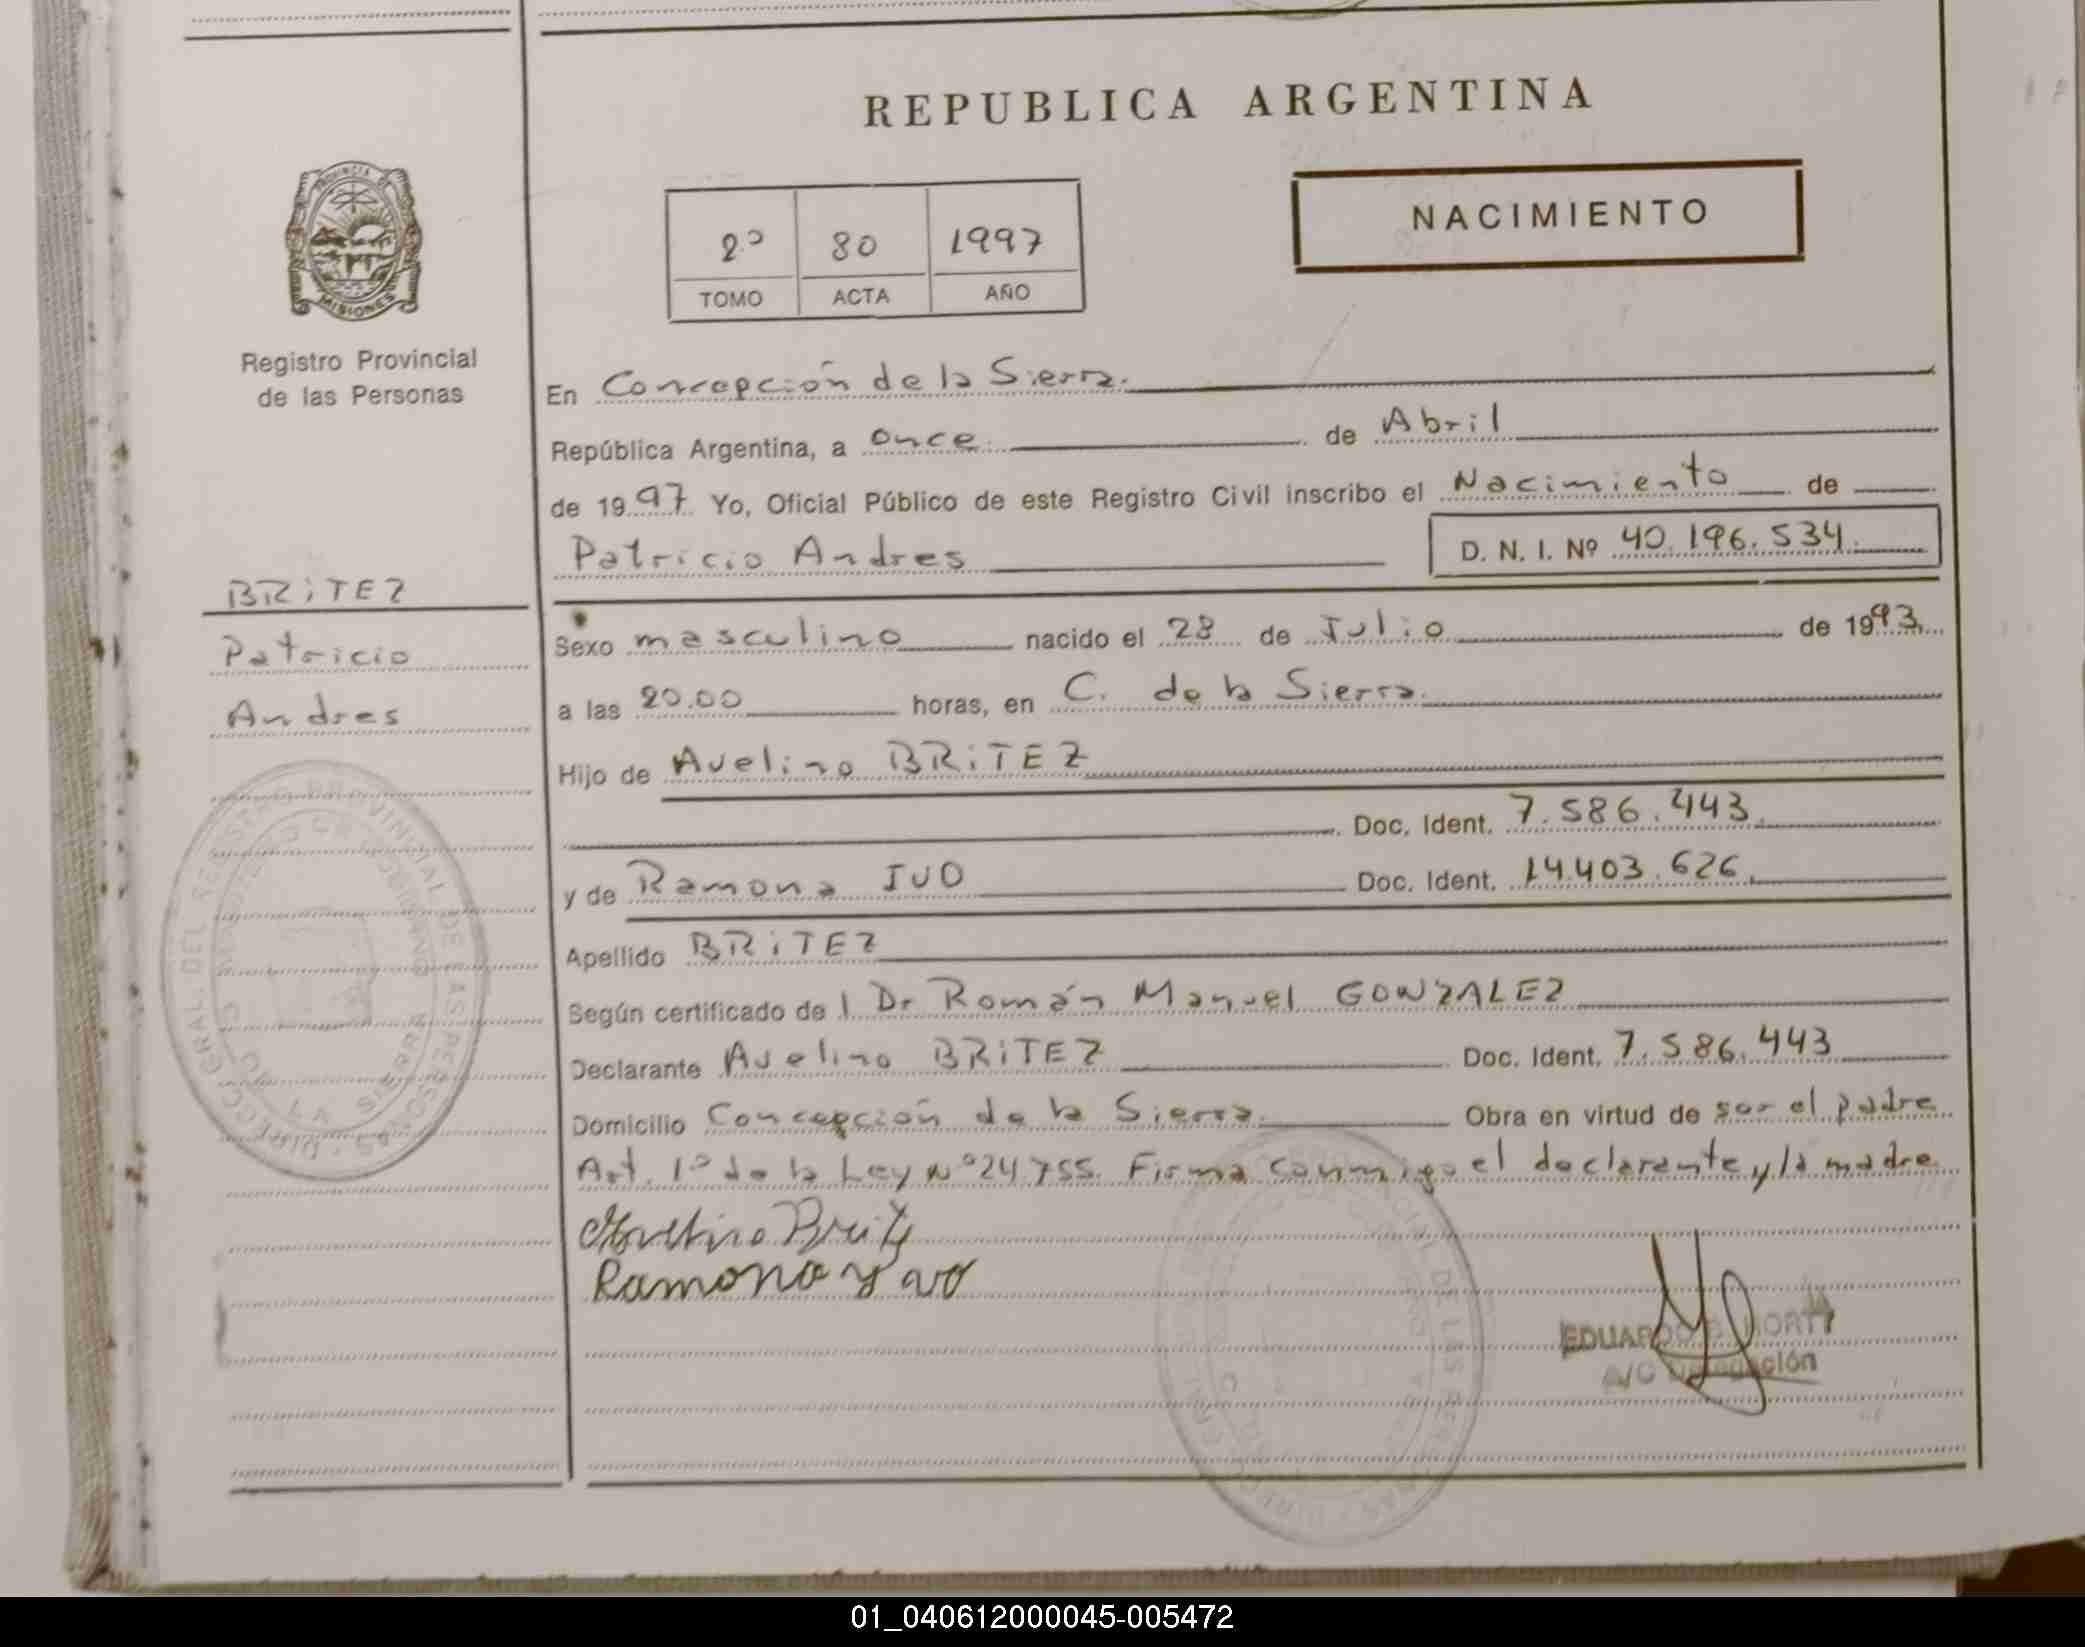 REPUBLICA ARGENTINA
NACIMIENTO
2º 80 1997
TOMO ACTA AÑO
PROVINCIA DE
MISIONES
Registro Provincial
de las Personas
En Concepción de la Sierra.
República Argentina, a once. de Abril
de 1997 Yo, Oficial Público de este Registro Civil inscribo el Nacimiento de
Patricio Andres D. N. I. Nº 40.196.534.
BRiTEZ
Patricio
Andres
Sexo masculino nacido el 28 de Julio de 1993.
a las 20.00 horas, en C. de la Sierra.
Hijo de Avelino BRiTEZ
Doc. Ident. 7.586.443.
y de Ramona IVO Doc. Ident. 14.403.626.
Apellido BRiTEZ
Según certificado de l Dr Román Manuel GONZALEZ
Declarante Avelino BRiTEZ Doc. Ident. 7.586.443
Domicilio Concepción de la Sierra. Obra en virtud de ser el padre
Art. 1º de la Ley Nº 24755. Firma conmigo el declarante y la madre
Avelino Britez
Ramona Yvo
EDUARDO
A/C Delegación
01_040612000045-005472